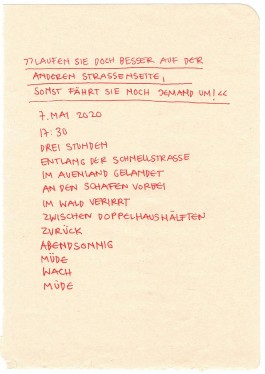 >>LAUFEN SIE DOCH BESSER AUF DER
ANDEREN STRASSENSEITE,
SONST FÄHRT SIE NOCH JEMAND UM!<<
7. MAI 2020
17:30
DREI STUNDEN
ENTLANG DER SCHNELLSTRASSE
IM AUENLAND GELANDET
AN DEN SCHAFEN VORBEI
IM WALD VERIRRT
ZWISCHEN DOPPELHAUSHÄLFTEN
ZURÜCK
ABENDSONNIG
MÜDE
WACH
MÜDE